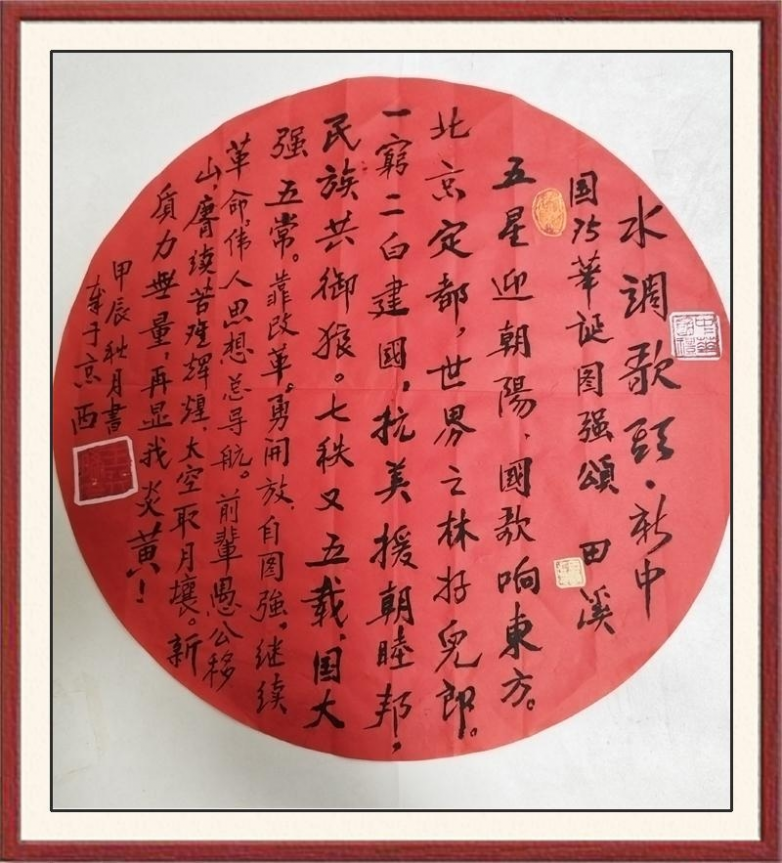 水調歌頭·新中
国75華誕图强頌 田溪
五星迎朝陽，國歌响東方。
北京定都，世界之林好兒郎。
一窮二白建國，抗美援朝睦邦，
民族共御狼。七秩又五载，国大
强五常。靠改革，勇開放，自图強。继续
革命伟人思想总导航。前輩愚公移
山，賡续苦难辉煌，太空取月壤。新
质力無量，再显我炎黄！
甲辰秋月書
辛于京西